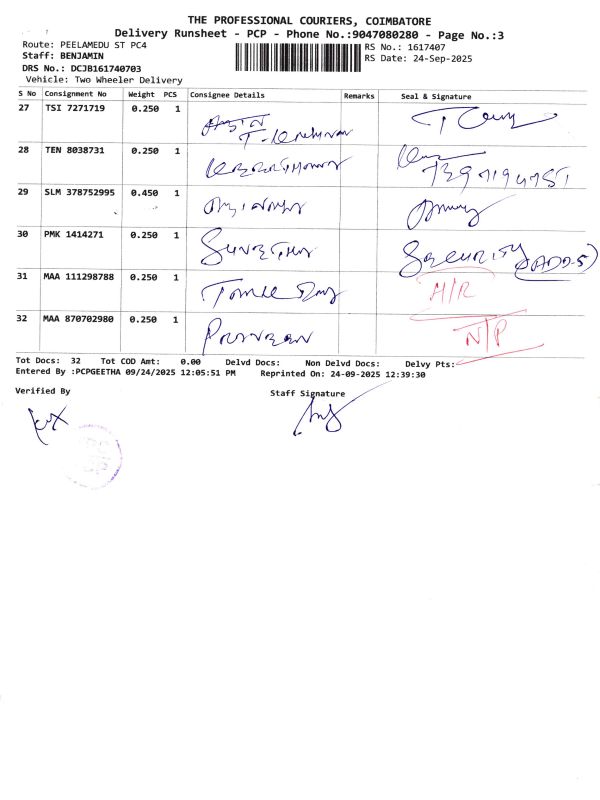 THE PROFESSIONAL COURIERS, COIMBATORE
Delivery Runsheet - PCP - Phone No.:9047080280 - Page No.:3
Route: PEELAMEDU ST PC4
RS No.: 1617407
Staff: BENJAMIN
RS Date: 24-Sep-2025
DRS No.: DCJB161740703
Vehicle: Two Wheeler Delivery
S No Consignment No Weight PCS Consignee Details Remarks Seal & Signature
27 TSI 7271719 0.250 1
28 TEN 8038731 0.250 1
29 SLM 378752995 0.450 1
30 PMK 1414271 0.250 1 SECURITY
31 MAA 111298788 0.250 1 H/R
32 MAA 870702980 0.250 1 PRAVEEN N/P
Tot Docs: 32 Tot COD Amt: 0.00 Delvd Docs: Non Delvd Docs: Delvy Pts:
Entered By :PCPGEETHA 09/24/2025 12:05:51 PM Reprinted On: 24-09-2025 12:39:30
Verified By
Staff Signature